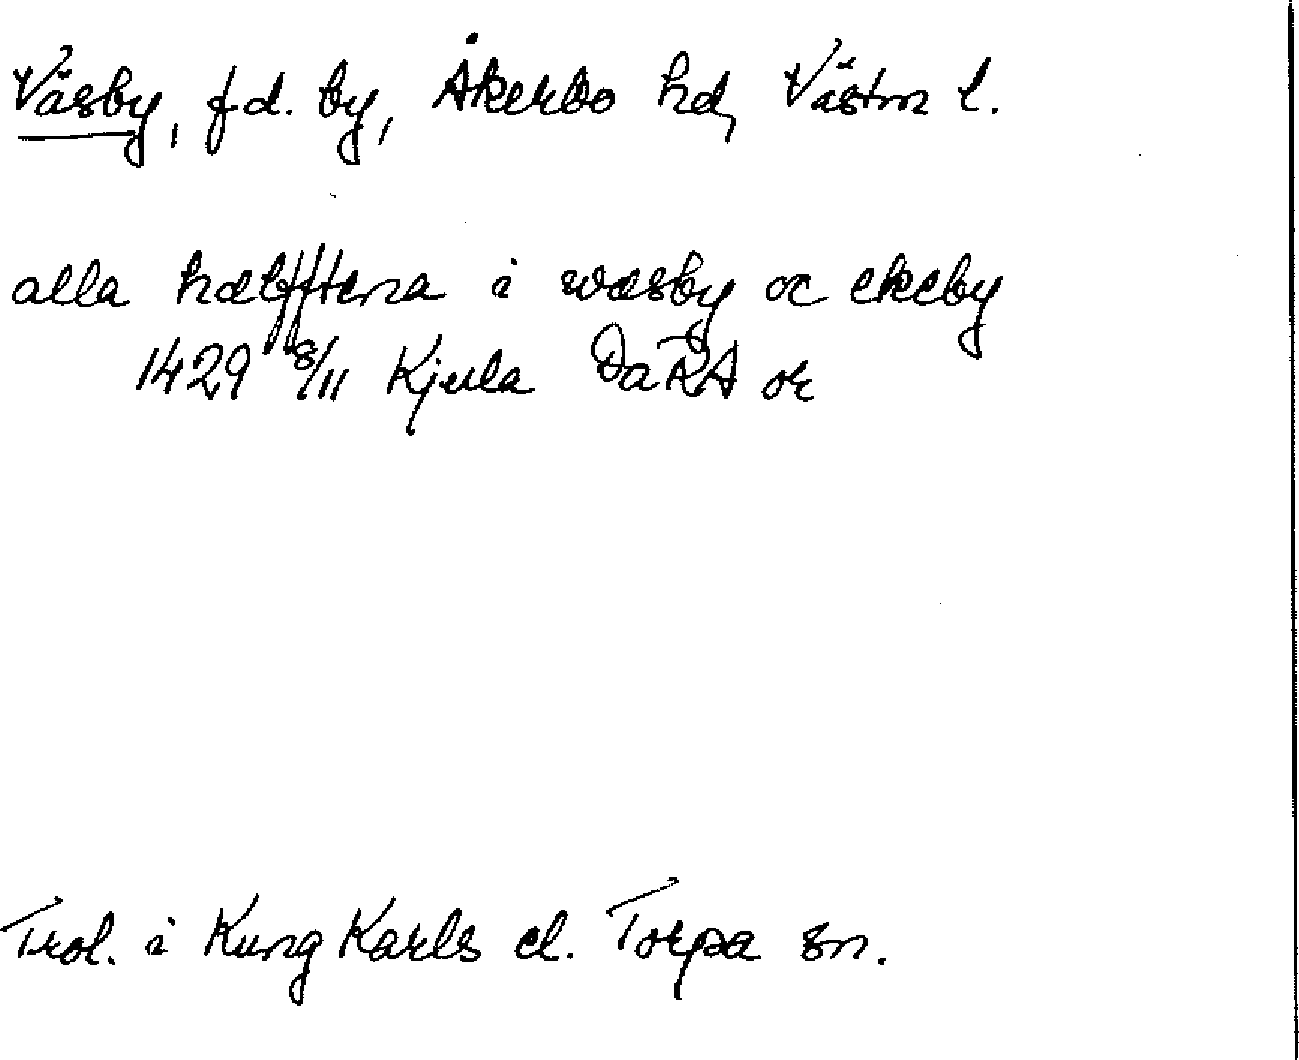 Väsby, f d. by, Åkerbo hd, Västm l.
alla hælfftena i wæsby oc ekeby
1429 8/11 Kjula DaRA or
Trol. i Kung Karls el. Torpa sn.